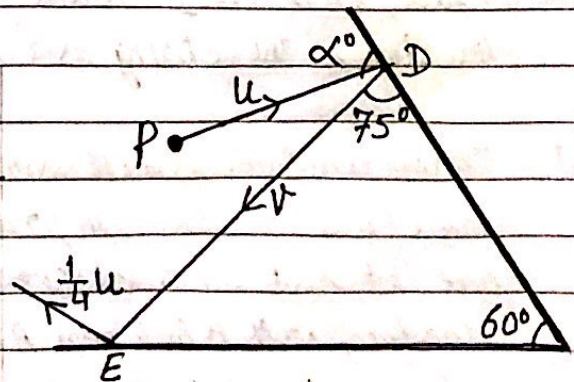 α° D
u
75°
P
v
1/4 u
60°
E